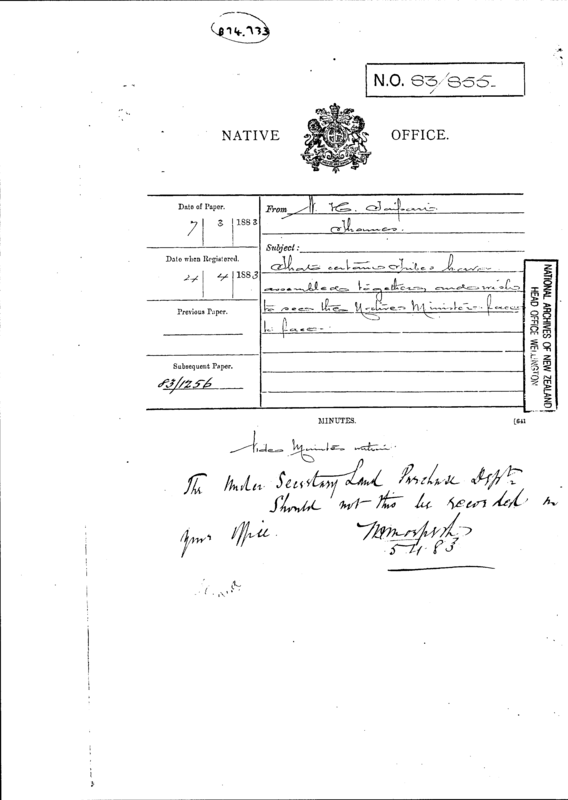 874.733
N.O. 83/855
NATIVE OFFICE.
Date of Paper.
7 | 3 | 1883
From W. H. Taipari
Thames.
Subject:
Date when Registered.
4 | 4 | 1883
That certain tribes have
assembled together, and wish
to see the Native Minister face
to face.
Previous Paper.
Subsequent Paper.
83/1256
NATIONAL ARCHIVES OF NEW ZEALAND
HEAD OFFICE WELLINGTON
MINUTES.
[641
Minute
The Under Secretary Land Purchase Dept.
Should not this be recorded in
your Office.
5.4.83